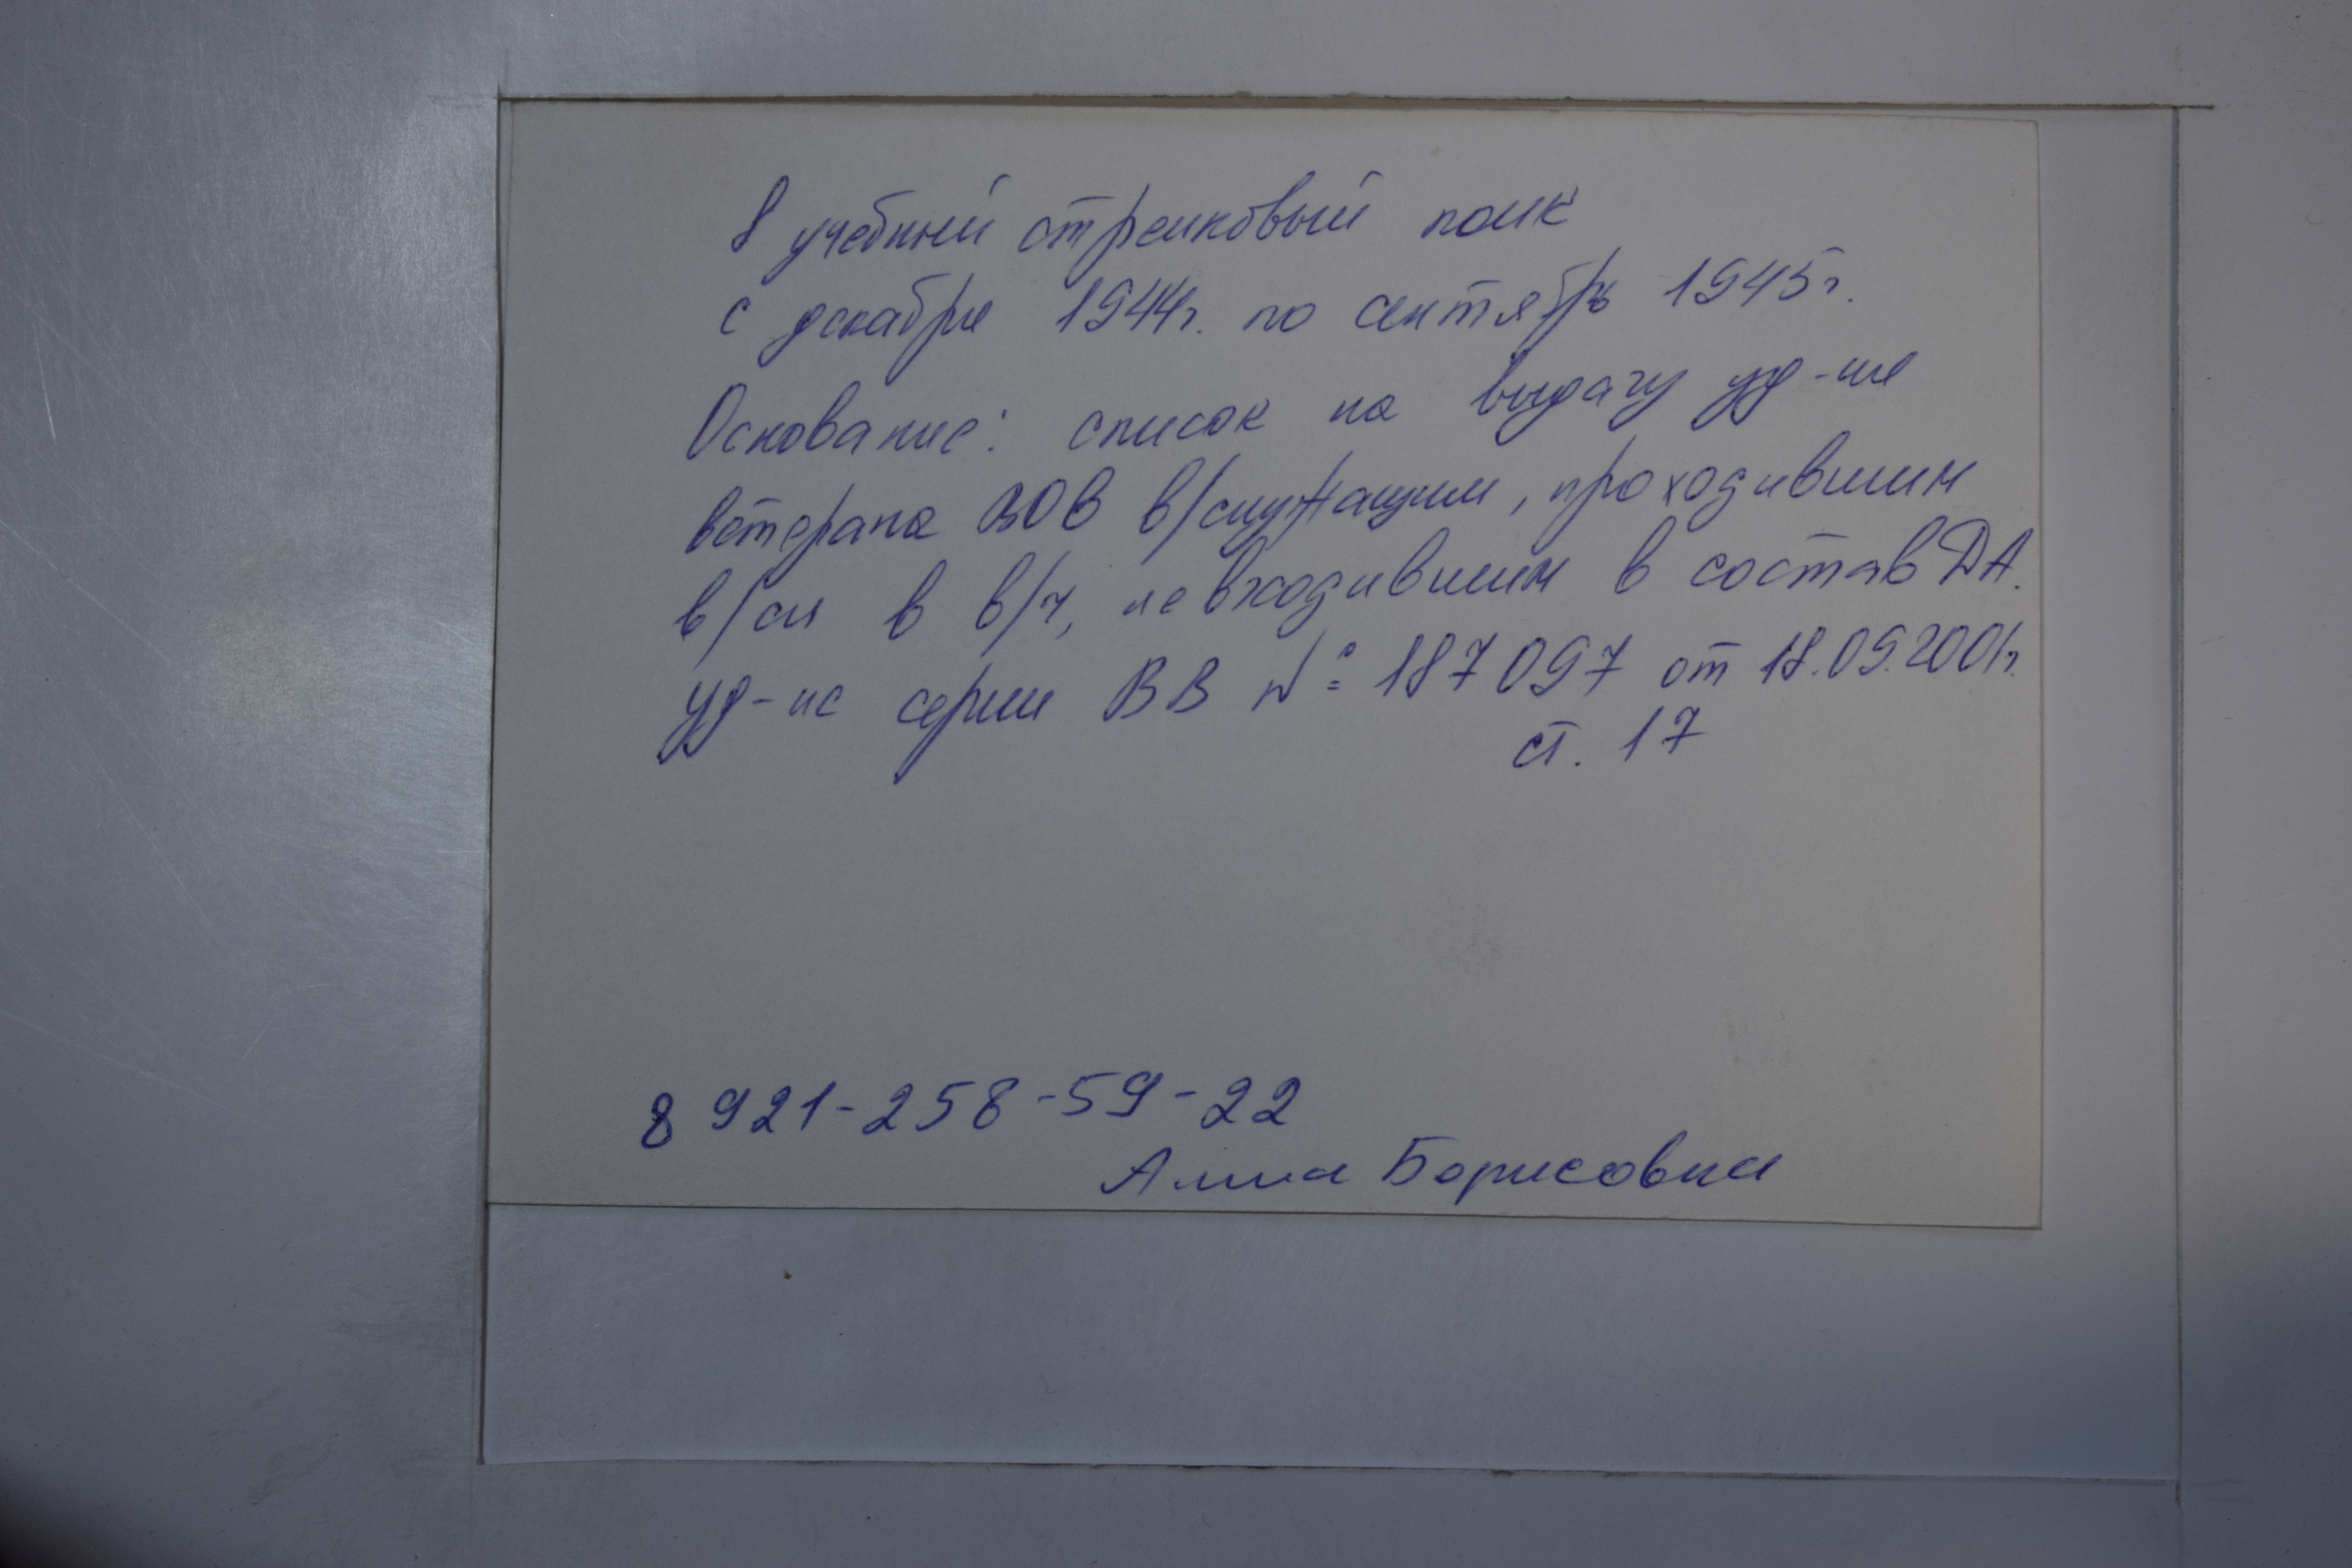 8 учебный стрелковый полк
с декабря 1944г. по сентябрь 1945г.
Основание: список на выдачу уд-ия
ветерана ВОВ в/служащим, проходившим
в/сл в в/ч, не входившим в состав ДА.
уд-ие серии ВВ № 187097 от 18.09.2001г.
ст. 17
8 921-258-59-22
Алла Борисовна